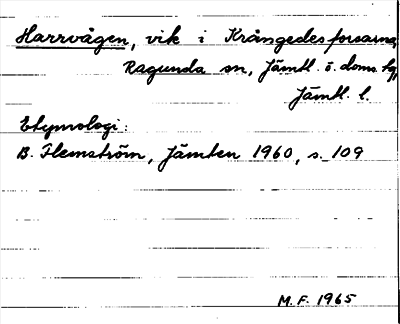 Harrvågen, vik i Krångedesforsarna,
Ragunda sn, Jämtl. ö. doms. hg,
Jämtl. l.
Etymologi:
B. Flemström, Jämten 1960, s. 109
M.F. 1965